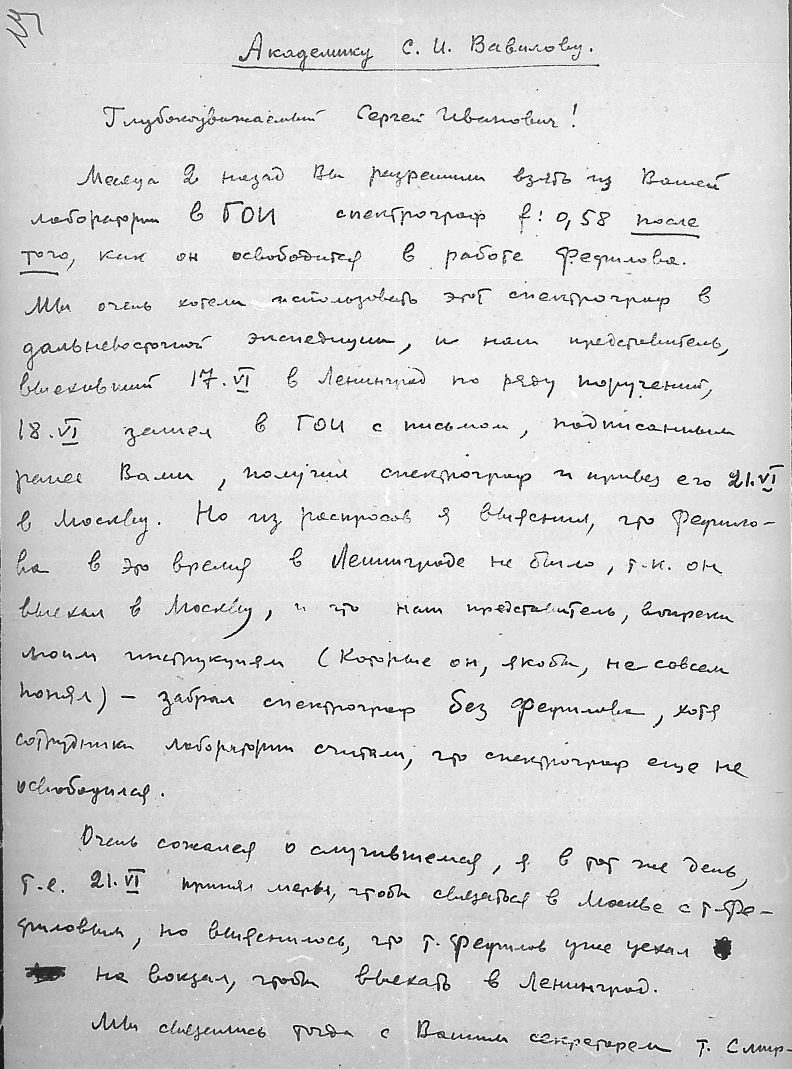 19
Академику С. И. Вавилову.
Глубокоуважаемый Сергей Иванович!
Месяца 2 назад Вы разрешили взять из Вашей
лаборатории в ГОИ спектрограф f: 0,58 после
того, как он освободится в работе Феофилова.
Мы очень хотели использовать этот спектрограф в
дальневосточной экспедиции, и наш представитель,
выехавший 17.VI в Ленинград по ряду поручений,
18.VI зашел в ГОИ с письмом, подписанным
ранее Вами, получил спектрограф и привез его 21.VI
в Москву. Но из распросов я выяснил, что Феофило-
ва в это время в Ленинграде не было, т.к. он
выехал в Москву, и что наш представитель, вопреки
моим инструкциям (которые он, якобы, не совсем
понял) – забрал спектрограф без Феофилова, хотя
сотрудники лаборатории считали, что спектрограф еще не
освободился.
Очень сожалея о случившемся, я в тот же день,
т.е. 21.VI принял меры, чтобы связаться в Москве с т. Фео-
филовым, но выяснилось, что т. Феофилов уже уехал
на вокзал, чтобы выехать в Ленинград.
Мы связались тогда с Вашим секретарем т. Смир-